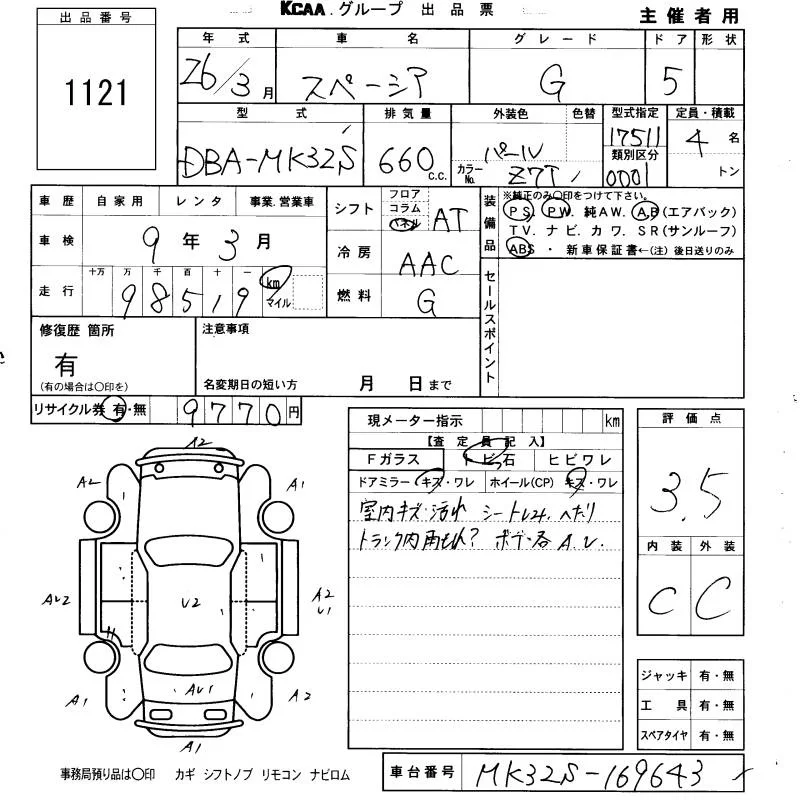 KCAA.グループ 出品票
主催者用
出品番号
1121
年式 車名 グレード ドア 形状
26/3月 スペーシア G 5
型式 排気量 外装色 色替 型式指定 定員・積載
DBA-MK32S 660 C.C. パール カラーNo. Z7T 17511 4名
類別区分
0001 トン
車歴 自家用 レンタ 事業.営業車
車検 9年3月
走行 十万 万 千 百 十 一
98519 km マイル
シフト フロア コラム パネル AT
冷房 AAC
燃料 G
装備品
※純正のみ○印をつけて下さい。
PS. PW. 純AW. A.B(エアバック)
TV. ナビ. カワ. SR(サンルーフ)
ABS・新車保証書←(注)後日送りのみ
セールスポイント
修復歴 箇所
有
(有の場合は○印を)
注意事項
名変期日の短い方 月 日まで
リサイクル券 有・無 9770円
現メーター指示 km
【査定員記入】
Fガラス トビ石 ヒビワレ
ドアミラー キズ・ワレ ホイール(CP) キズ・ワレ
室内キズ・汚れ シート ヘたり
トランク内 ? ボデー各 A.U.
評価点
3.5
内装 外装
C C
ジャッキ 有・無
工具 有・無
スペアタイヤ 有・無
A2
A2 A1
AU2 U2 A2
U1
A1 AU1 A2
A1
事務局預り品は○印 カギ シフトノブ リモコン ナビロム
車台番号 MK32S-169643